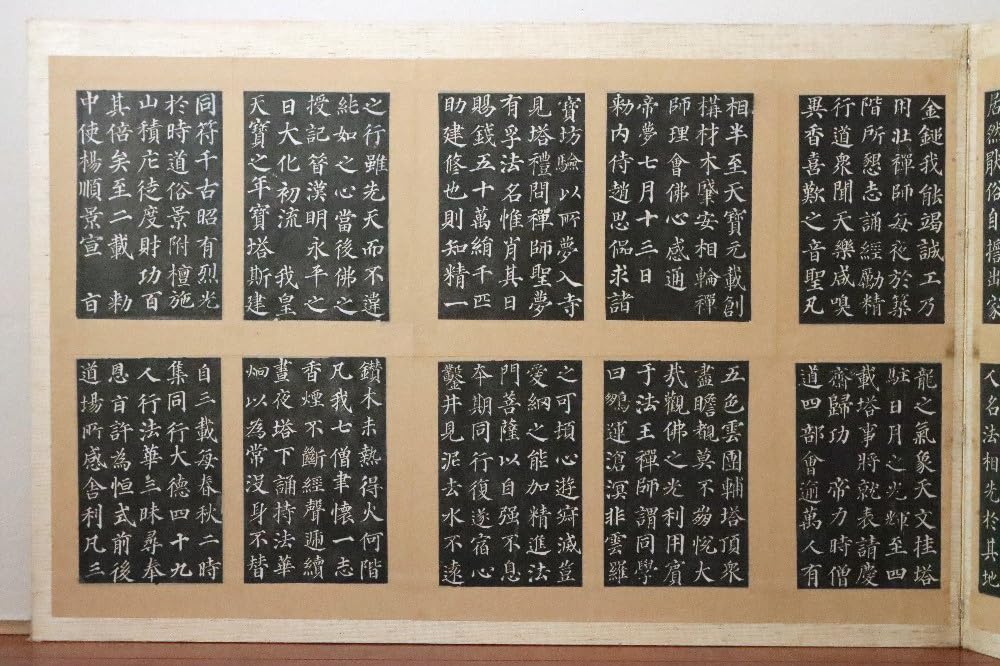 居然厭俗自誓出家
金鎚我能竭誠工乃
用壯禪師每夜於築
階所懇志誦經勵精
行道眾聞天樂咸嗅
異香喜歎之音聖凡
相半至天寶元載創
構材木肇安相輪禪
師理會佛心感通
帝夢七月十三日
勑內侍趙思侃求諸
寶坊驗以所夢入寺
見塔禮問禪師聖夢
有孚法名惟肖其日
賜錢五十萬絹千匹
助建修也則知精一
之行雖先天而不違
純如之心當後佛之
授記昔漢明永平之
日大化初流 我皇
天寶之年寶塔斯建
同符千古昭有烈光
於時道俗景附檀施
山積庀徒度財功百
其倍矣至二載 勑
中使楊順景宣 旨
人名法相先於其地
龍之氣象天文挂塔
駐日月之光輝至四
載塔事將就表請慶
齋歸功 帝力時僧
道四部會逾萬人有
五色雲團輔塔頂眾
盡瞻覩莫不崩悅大
哉觀佛之光利用賓
于法王禪師謂同學
曰鵬運滄溟非雲羅
之可頓心遊寂滅豈
愛網之能加精進法
門菩薩以自强不息
本期同行復遂宿心
鑿井見泥去水不遠
鑽木未熱得火何階
凡我七僧聿懷一志
香煙不斷經聲遞續
晝夜塔下誦持法華
炯以為常沒身不替
自三載每春秋二時
集同行大德四十九
人行法華三昧尋奉
恩旨許為恒式前後
道場所感舍利凡三